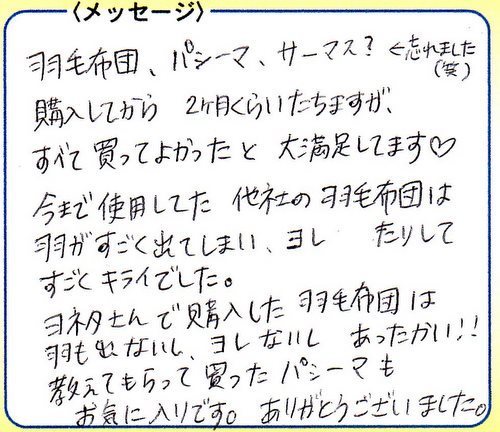 〈メッセージ〉
羽毛布団、パシーマ、サーマス？ ←忘れました(笑)
購入してから 2ヶ月くらいたちますが、
すべて買ってよかったと 大満足してます♡
今まで使用してた 他社の羽毛布団は
羽がすごく出てしまい、ヨレ たりして
すごくキライでした。
ヨネタさんで購入した羽毛布団は
羽も出ないし、ヨレないし あったかい!!
教えてもらって買ったパシーマも
お気に入りです。ありがとうございました。